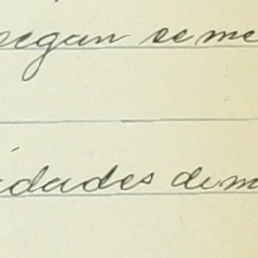 segun seme
idades dem